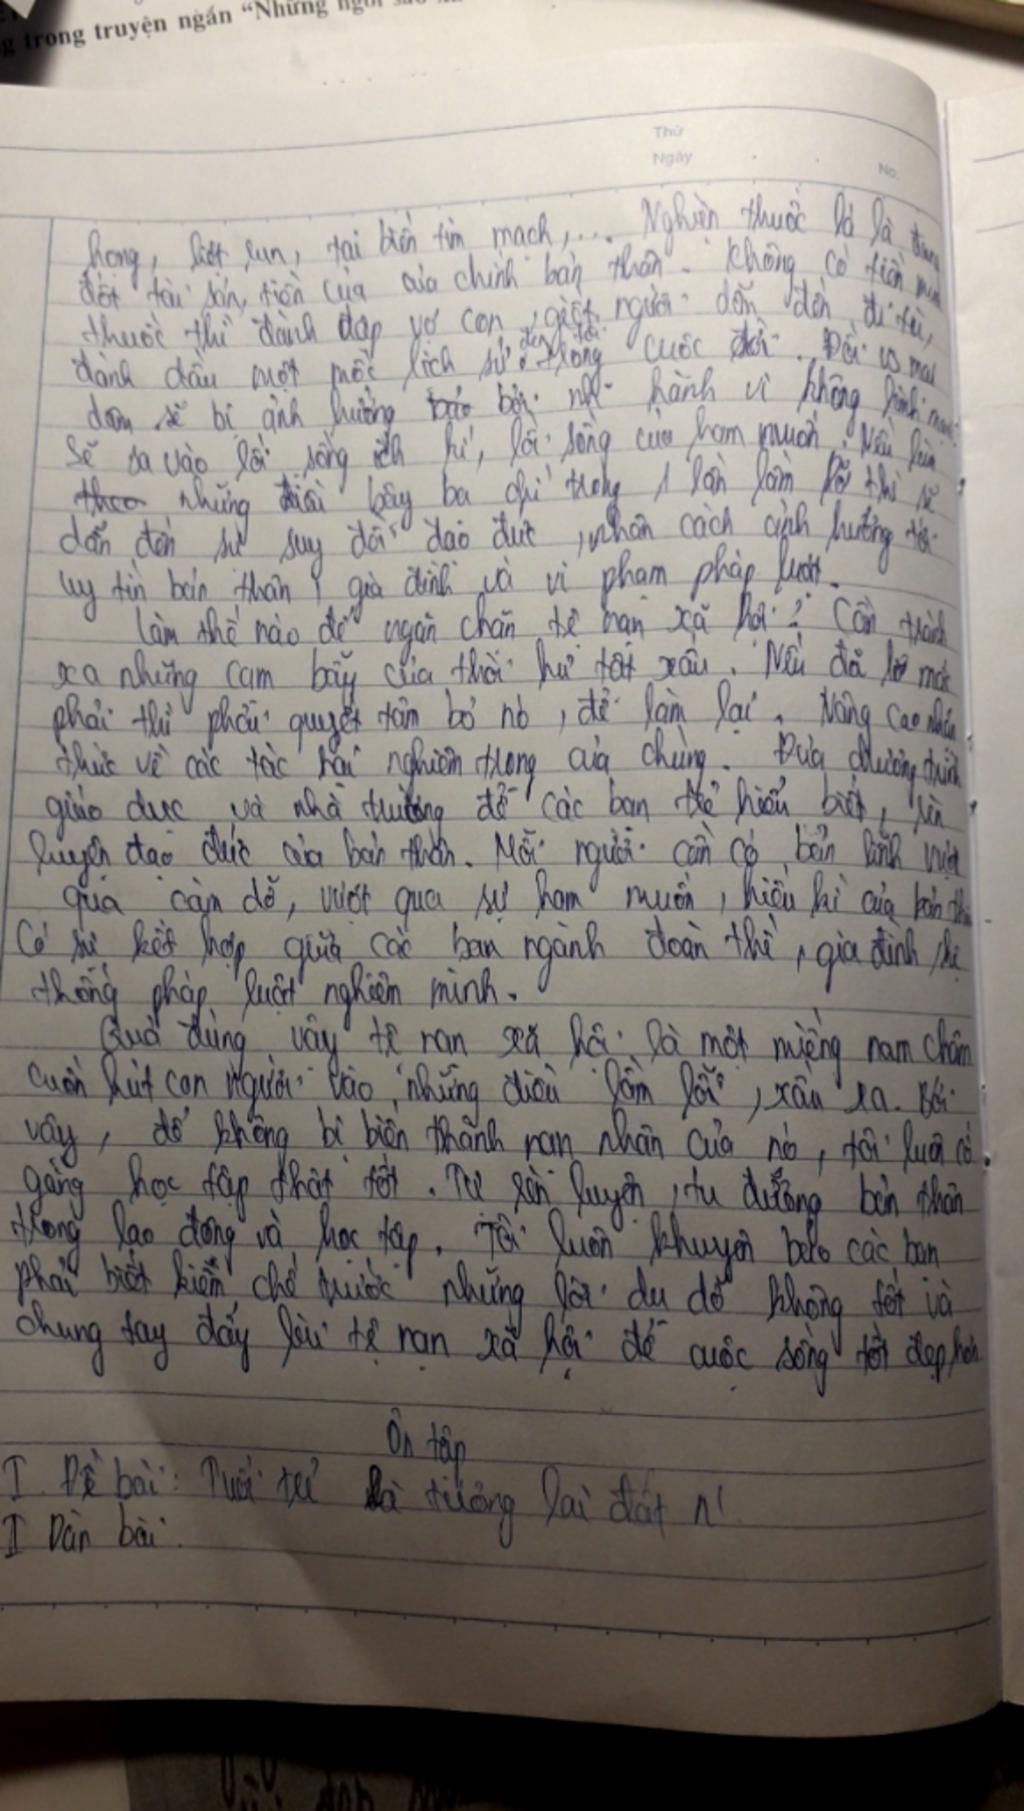 g trong truyện ngắn "Những ngôi sao
Thứ
Ngày
No.
họng, liệt run, tai biến tim mạch,... Nghiện thuốc lá là đang
đốt tài sản, tiền của của chính bản thân. Không có tiền mua
thuốc thì đánh đập vợ con, giết người dẫn đến đi tù,
đánh dấu một mốc lịch sử đen tối trong cuộc đời. Đối vs mại
dâm sẽ bị ảnh hưởng bởi nh~ hành vi không lành mạnh
Sẽ sa vào lối sống ích kỉ, lối sống của ham muốn. Nếu làm
theo những điều bậy bạ chỉ trong 1 lần lầm lỡ thì sẽ
dẫn đến sự suy đồi đạo đức, nhân cách ảnh hưởng tới
uy tín bản thân, gia đình và vi phạm pháp luật.
Làm thế nào để ngăn chặn tệ nạn xã hội? Cần tránh
xa những cạm bẫy của thói hư tật xấu. Nếu đã lỡ mắc
phải thì phải quyết tâm bỏ nó, để làm lại. Nâng cao nhận
thức về các tác hại nghiêm trọng của chúng. Đưa chương trình
giáo dục và nhà trường để các bạn thể hiểu biết, rèn
luyện đạo đức của bản thân. Mỗi người cần có bản lĩnh vượt
qua cám dỗ, vượt qua sự ham muốn, hiếu kì của bản thân
Có sự kết hợp giữa các ban ngành đoàn thể, gia đình, hệ
thống pháp luật nghiêm minh.
Quả đúng vậy tệ nạn xã hội là một miếng nam châm
cuốn hút con người vào những điều lầm lỗi, xấu xa. Bởi
vậy, để không bị biến thành nạn nhân của nó, tôi luôn cố
gắng học tập thật tốt. Tự rèn luyện, tu dưỡng bản thân
trong lao động và học tập. Tôi luôn khuyên bảo các bạn
phải biết kiềm chế trước những lời dụ dỗ không tốt và
chung tay đẩy lùi tệ nạn xã hội để cuộc sống tốt đẹp hơn
Ôn tập
I Đề bài: Tuổi trẻ là tương lai đất n'
I Dàn bài: